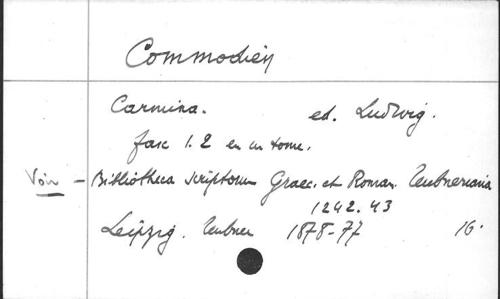 Commodien
Carmina. ed. Ludwig.
fasc 1. 2 en un tome.
Voir - Bibliotheca scriptorum Graec. et Roman. Teubneriana
1242. 43
Leipzig. Teubner 1878-77 16°